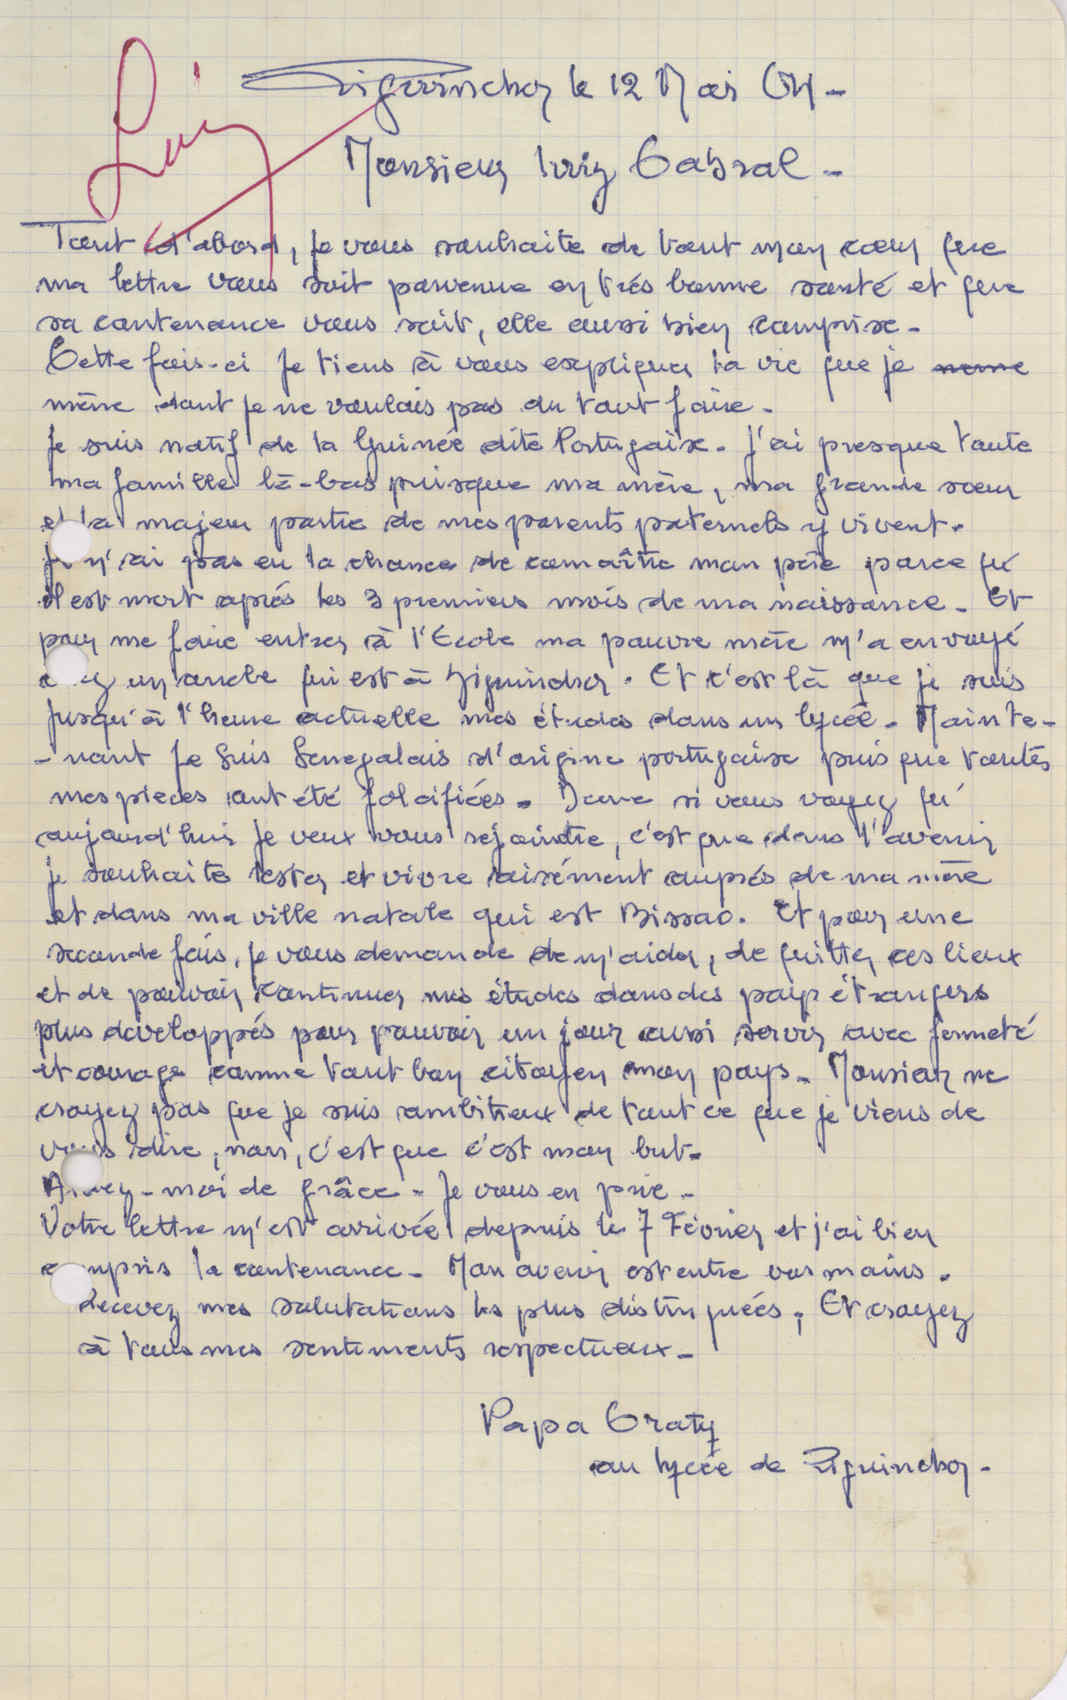 Luiz
Ziguinchor le 12 Mai 64 -
Monsieur Luiz Cabral -
Tout d'abord, je vous souhaite de tout mon cœur que
ma lettre vous soit parvenue en très bonne santé et que
sa contenance vous soit, elle aussi bien comprise -
Cette fois-ci je tiens à vous expliquer la vie que je mene
mène dont je ne voulais pas du tout faire -
Je suis natif de la Guinée dite Portugaise - J'ai presque toute
ma famille là-bas puisque ma mère, ma grande sœur
et la majeur partie de mes parents paternels y vivent.
Je n'ai pas eu la chance de connaître mon père parce qu'
il est mort aprés les 3 premiers mois de ma naissance - Et
pour me faire entrer à l'Ecole ma pauvre mère m'a envoyé
un oncle qui est à Ziguinchor. Et c'est là que je suis
jusqu'à l'heure actuelle mes études dans un lycée - Mainte-
- nant je suis Senegalais d'origine portugaise puis que toutes
mes pieces ont été falcifiées. Donc si vous voyez qu'
aujourd'hui je veux vous rejoindre, c'est que dans l'avenir
je souhaite rester et vivre aisément auprés de ma mère
et dans ma ville natale qui est Bissao. Et pour une
seconde fois, je vous demande de m'aider, de quitter ces lieux
et de pouvoir continuer mes études dans des pays étrangers
plus developpés pour pouvoir un jour aussi servir avec fermeté
et courage comme tout bon citoyen mon pays - Monsieur ne
croyez pas que je suis ambitieux de tout ce que je viens de
vous dire, non, c'est que c'est mon but.
Aidez-moi de grâce - Je vous en prie -
Votre lettre m'est arrivée depuis le 7 Février et j'ai bien
compris la contenance - Mon avenir est entre vos mains.
Recevez mes salutations les plus distinguées, Et croyez
à tous mes sentiments respectueux -
Papa Graty
au lycée de Ziguinchor -